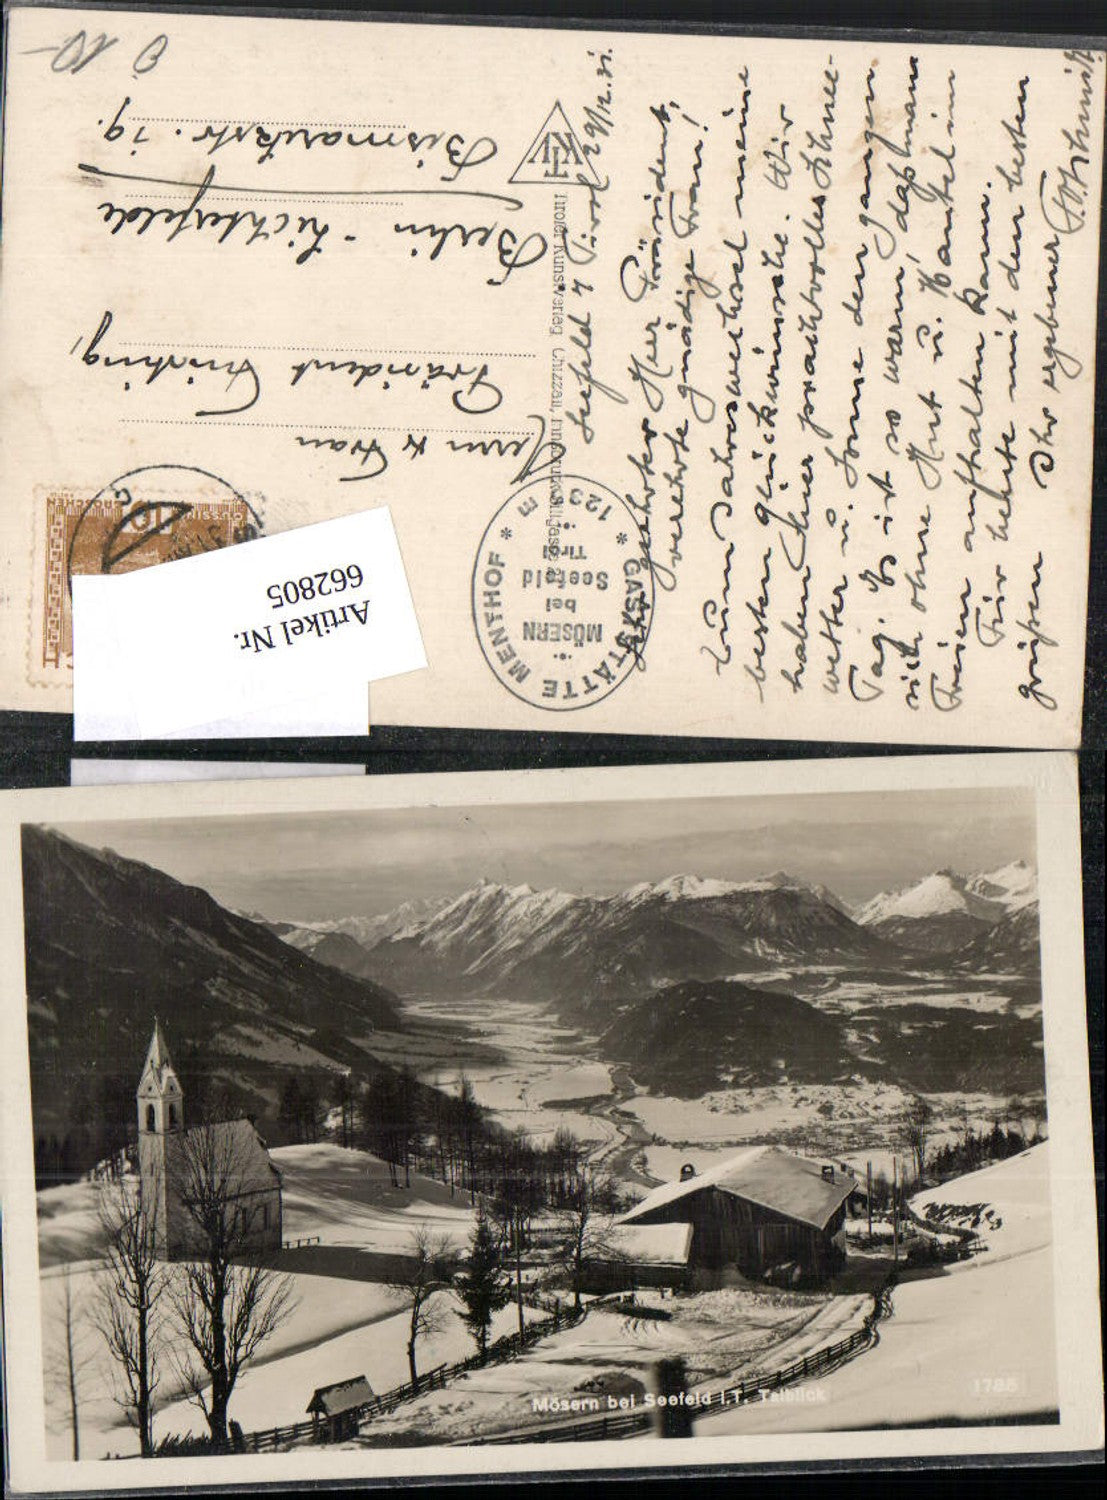 ö 10.-
Seefeld i/ Tirol 29/12.31.
Sehr geehrter Herr Präsident,
verehrte gnädige Frau!
Zum Jahreswechsel meine
besten Glückwünsche. Wir
haben hier prachtvolles Schnee-
wetter u. Sonne den ganzen
Tag. Es ist so warm, daß man
sich ohne Hut u. Mantel im
Freien aufhalten kann.
Für heute mit den besten
Grüßen Ihr ergebener
Herrn & Frau
Präsident
Berlin - Lichterfelde
Bismarckstr. 19.
KTV
Tiroler Kunstverlag Chizzali, Innsbruck
GASTSTÄTTE MENTHOF
MÖSERN
bei
Seefeld
Tirol
123 m
GROSCHEN
10
Artikel Nr.
662805
Mösern bei Seefeld i.T. Talblick
1785